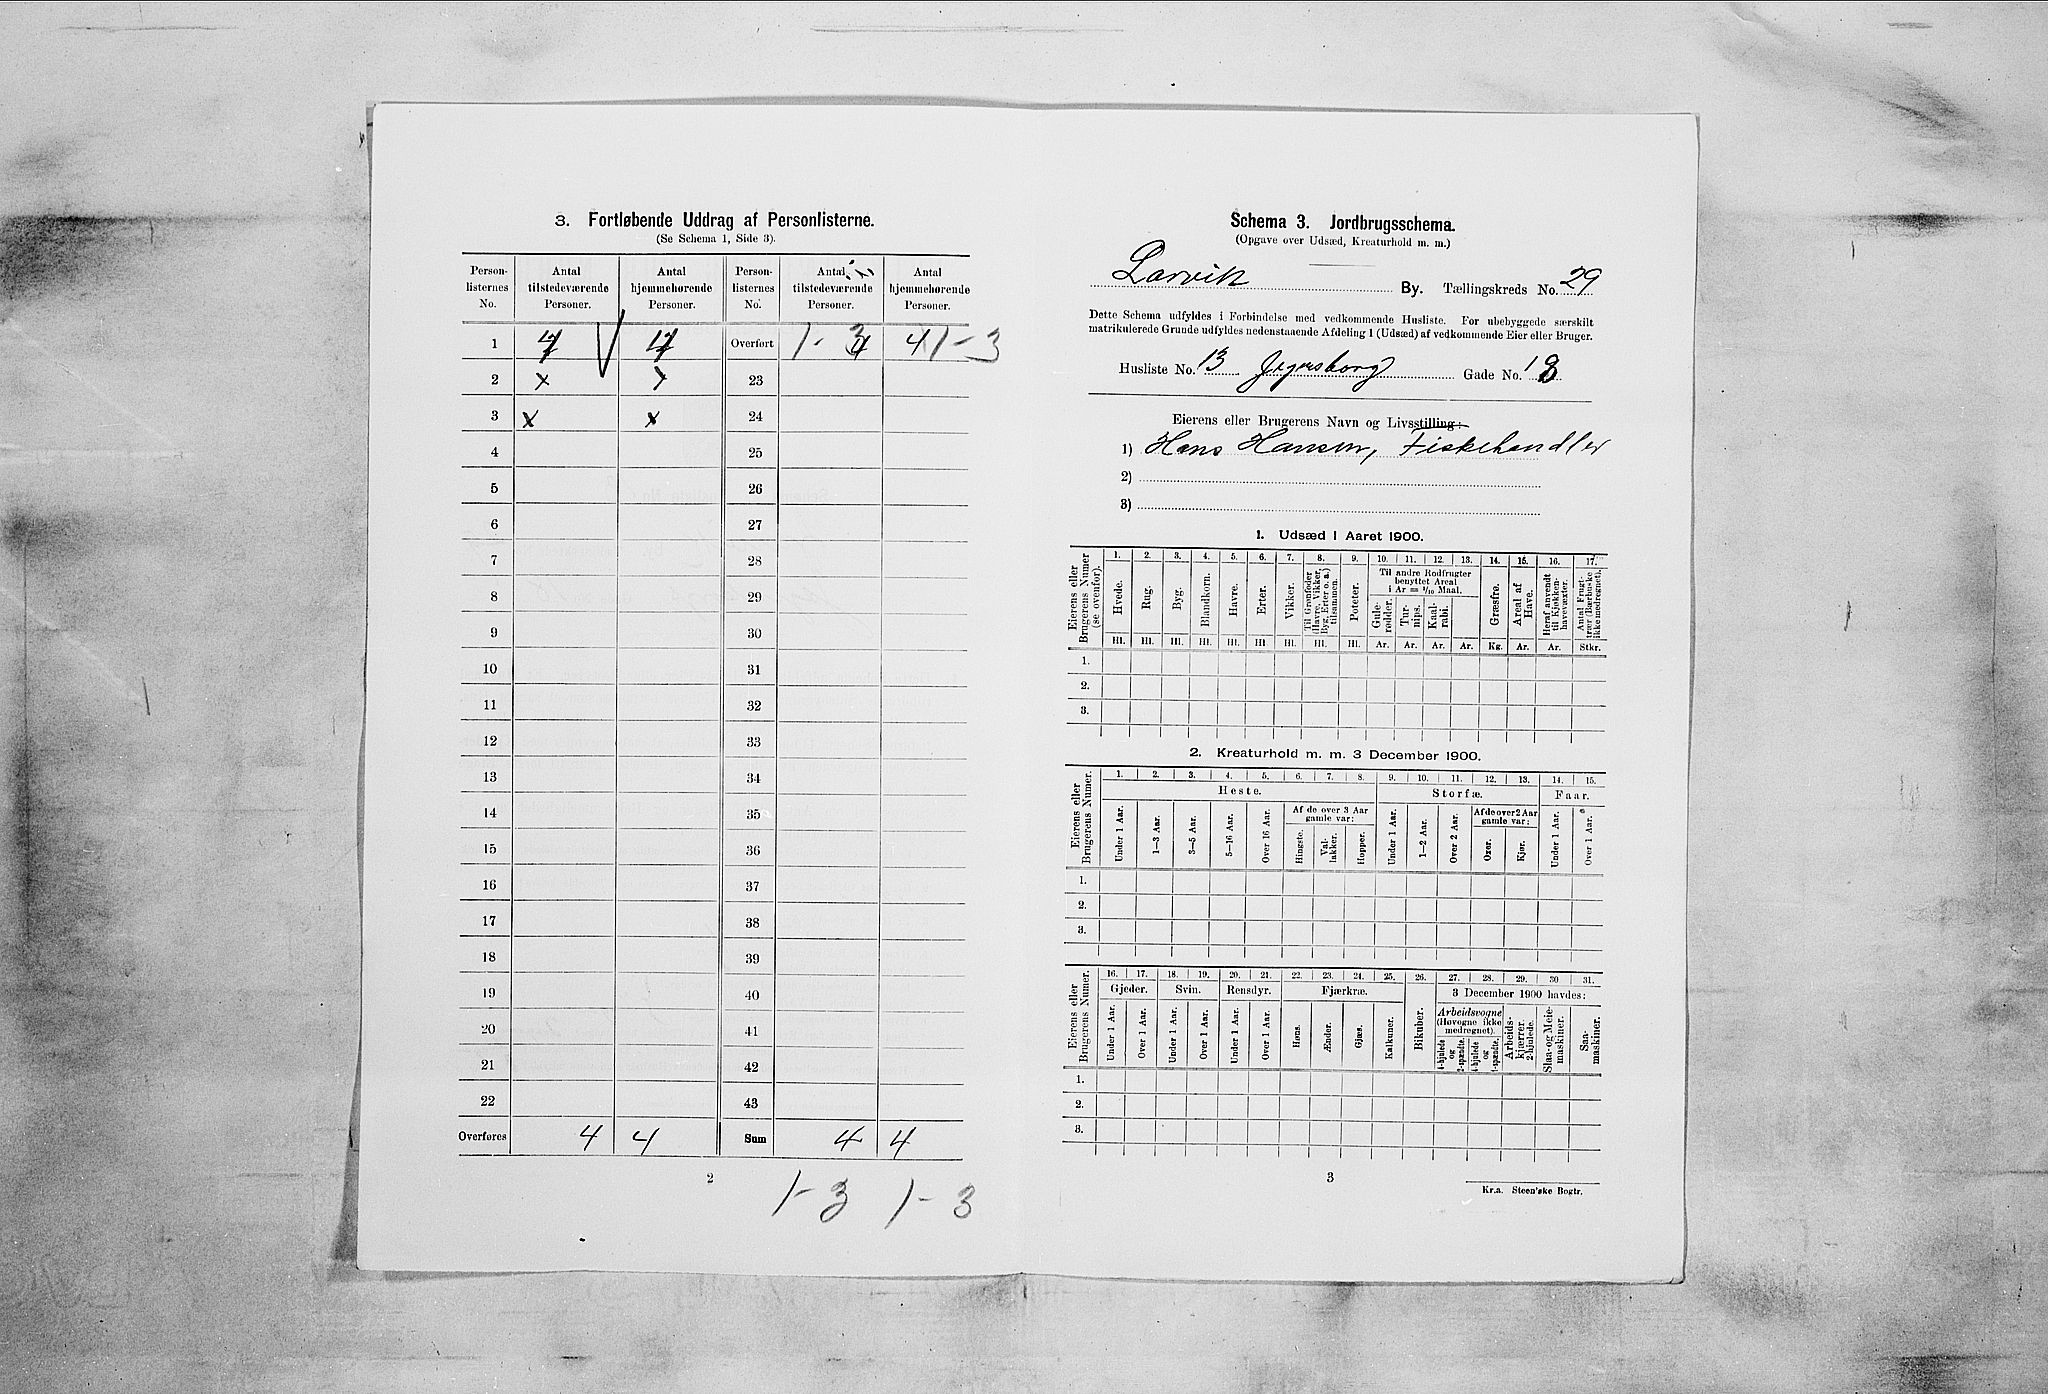 3. Fortløbende Uddrag af Personlisterne.
(Se Schema 1, Side 3).
Person-listernes No. Antal tilstedeværende Personer. Antal hjemmehørende Personer. Person-listernes No. Antal tilstedeværende Personer. Antal hjemmehørende Personer.
1 4 4 Overført 1-3 4 4 1-3
2 x x 23
3 x x 24
4 25
5 26
6 27
7 28
8 29
9 30
10 31
11 32
12 33
13 34
14 35
15 36
16 37
17 38
18 39
19 40
20 41
21 42
22 43
Overføres 4 4 Sum 4 4
2
1-3 1-3
Schema 3. Jordbrugsschema.
(Opgave over Udsæd, Kreaturhold m. m.)
Larvik By. Tællingskreds No. 29
Dette Schema udfyldes i Forbindelse med vedkommende Husliste. For ubebyggede særskilt
matrikulerede Grunde udfyldes nedenstaaende Afdeling 1 (Udsæd) af vedkommende Eier eller Bruger.
Husliste No. 13 Jegersborg Gade No. 18
Eierens eller Brugerens Navn og Livsstilling:
1) Hans Hansen, Fiskehandler
2)
3)
1. Udsæd i Aaret 1900.
Eierens eller Brugerens Numer (se ovenfor).
1. 2. 3. 4. 5. 6. 7. 8. 9. 10. 11. 12. 13. 14. 15. 16. 17.
Hvede. Rug. Byg. Blandkorn. Havre. Erter. Vikker. Til Grønfoder (Havre, Vikker, Byg, Erter o. a.) tilsammen. Poteter.
Til andre Rodfrugter
benyttet Areal
i Ar = 1/10 Maal.
Gule-rødder. Tur-nips. Kaal-rabi.
Græsfrø. Areal af Have. Heraf anvendt til Kjøkken-havevæxter. Antal Frugt-trær (Bærbuske ikke medregnet).
Hl. Hl. Hl. Hl. Hl. Hl. Hl. Hl. Hl. Ar. Ar. Ar. Ar. Kg. Ar. Ar. Stkr.
1.
2.
3.
2. Kreaturhold m. m. 3 December 1900.
Eierens eller Brugerens Numer.
1. 2. 3. 4. 5. 6. 7. 8. 9. 10. 11. 12. 13. 14. 15.
Heste. Storfæ. Faar.
Under 1 Aar. 1—3 Aar. 3—5 Aar. 5—16 Aar. Over 16 Aar.
Af de over 3 Aar gamle var:
Hingste. Val-lakker. Hopper.
Under 1 Aar. 1—2 Aar. Over 2 Aar.
Af de over 2 Aar gamle var:
Oxer. Kjør.
Under 1 Aar. Over 1 Aar.
1.
2.
3.
Eierens eller Brugerens Numer.
16. 17. 18. 19. 20. 21. 22. 23. 24. 25. 26. 27. 28. 29. 30 31.
Gjeder. Svin. Rensdyr. Fjærkræ. Bikuber. 3 December 1900 havdes:
Under 1 Aar. Over 1 Aar. Under 1 Aar. Over 1 Aar. Under 1 Aar. Over 1 Aar. Høns. Ænder. Gjæs. Kalkuner.
Arbeidsvogne
(Hovogne ikke
medregnet).
4-hjulede og 2-spændte. 4-hjulede og 1-spændte.
Arbeids-kjærrer. 2-hjulede. Slaa- og Meie-maskiner. Saa-maskiner.
1.
2.
3.
3
Kr.a. Steen'ske Bogtr.